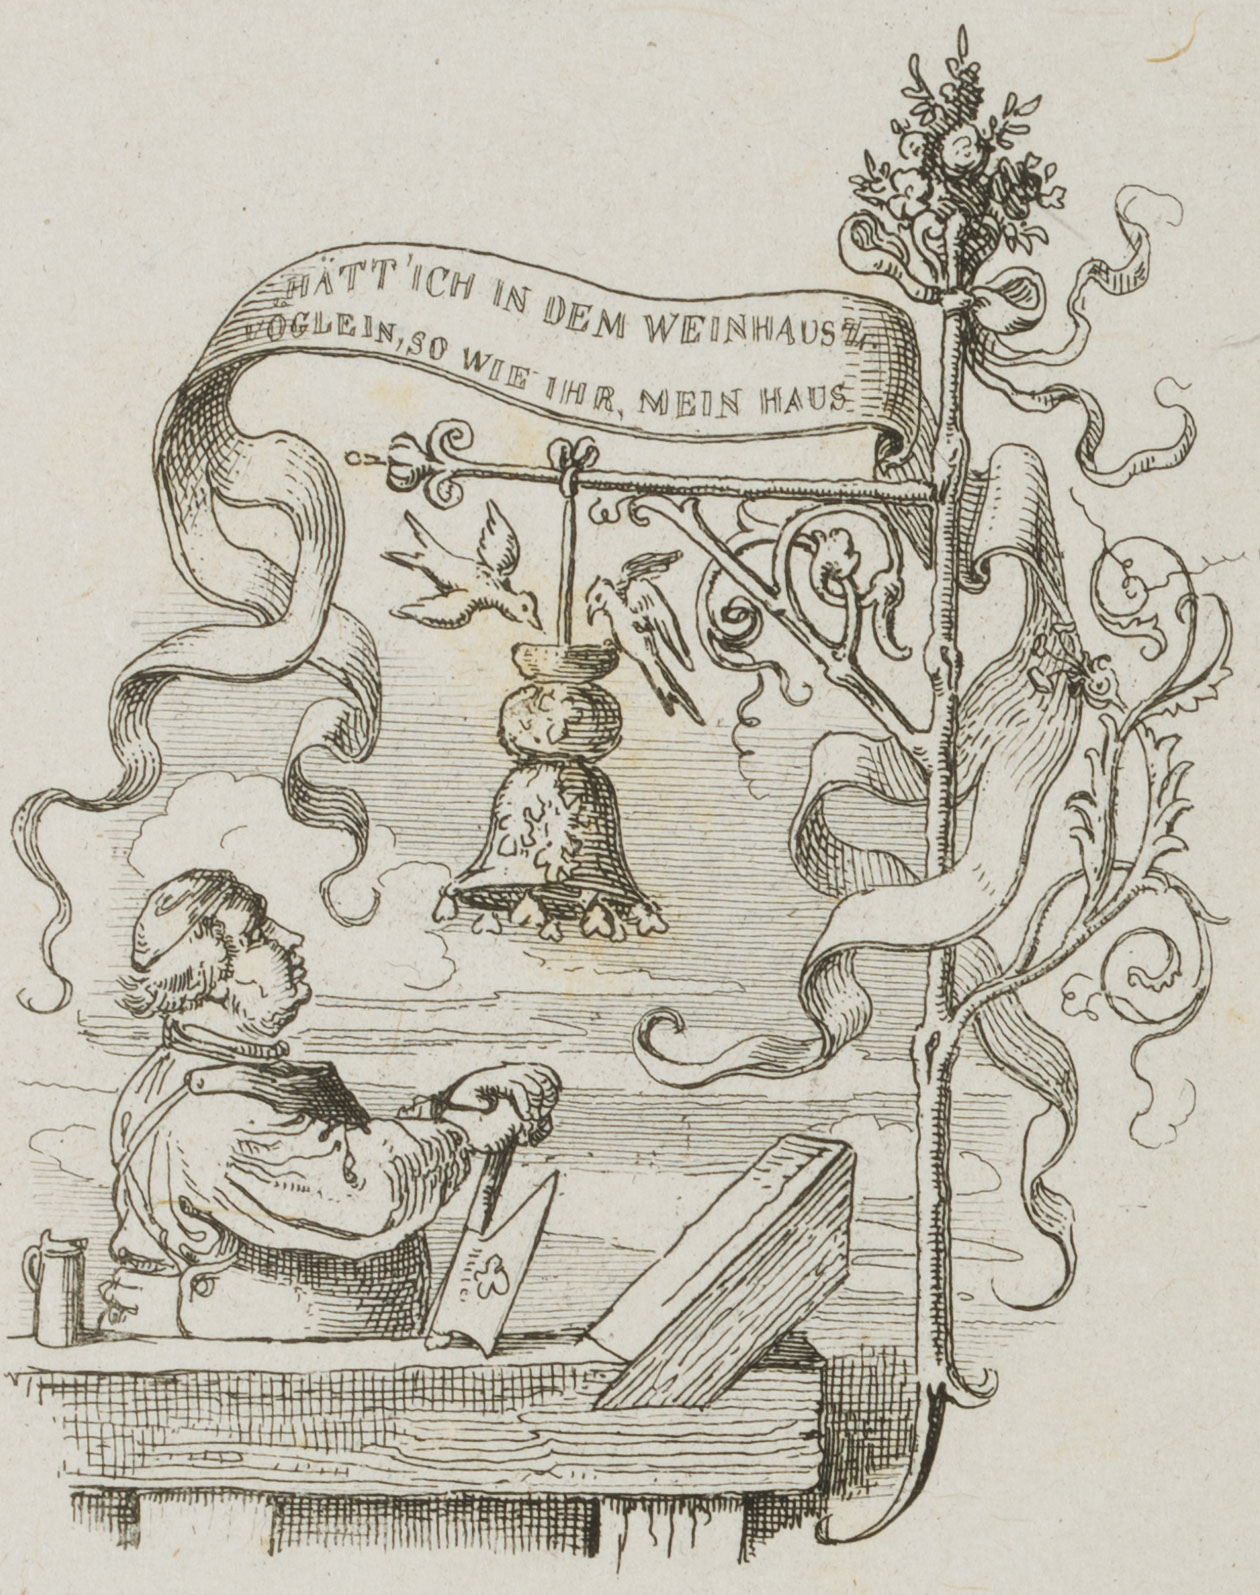 „HÄTT' ICH IN DEM WEINHAUS
VÖGLEIN, SO WIE IHR, MEIN HAUS